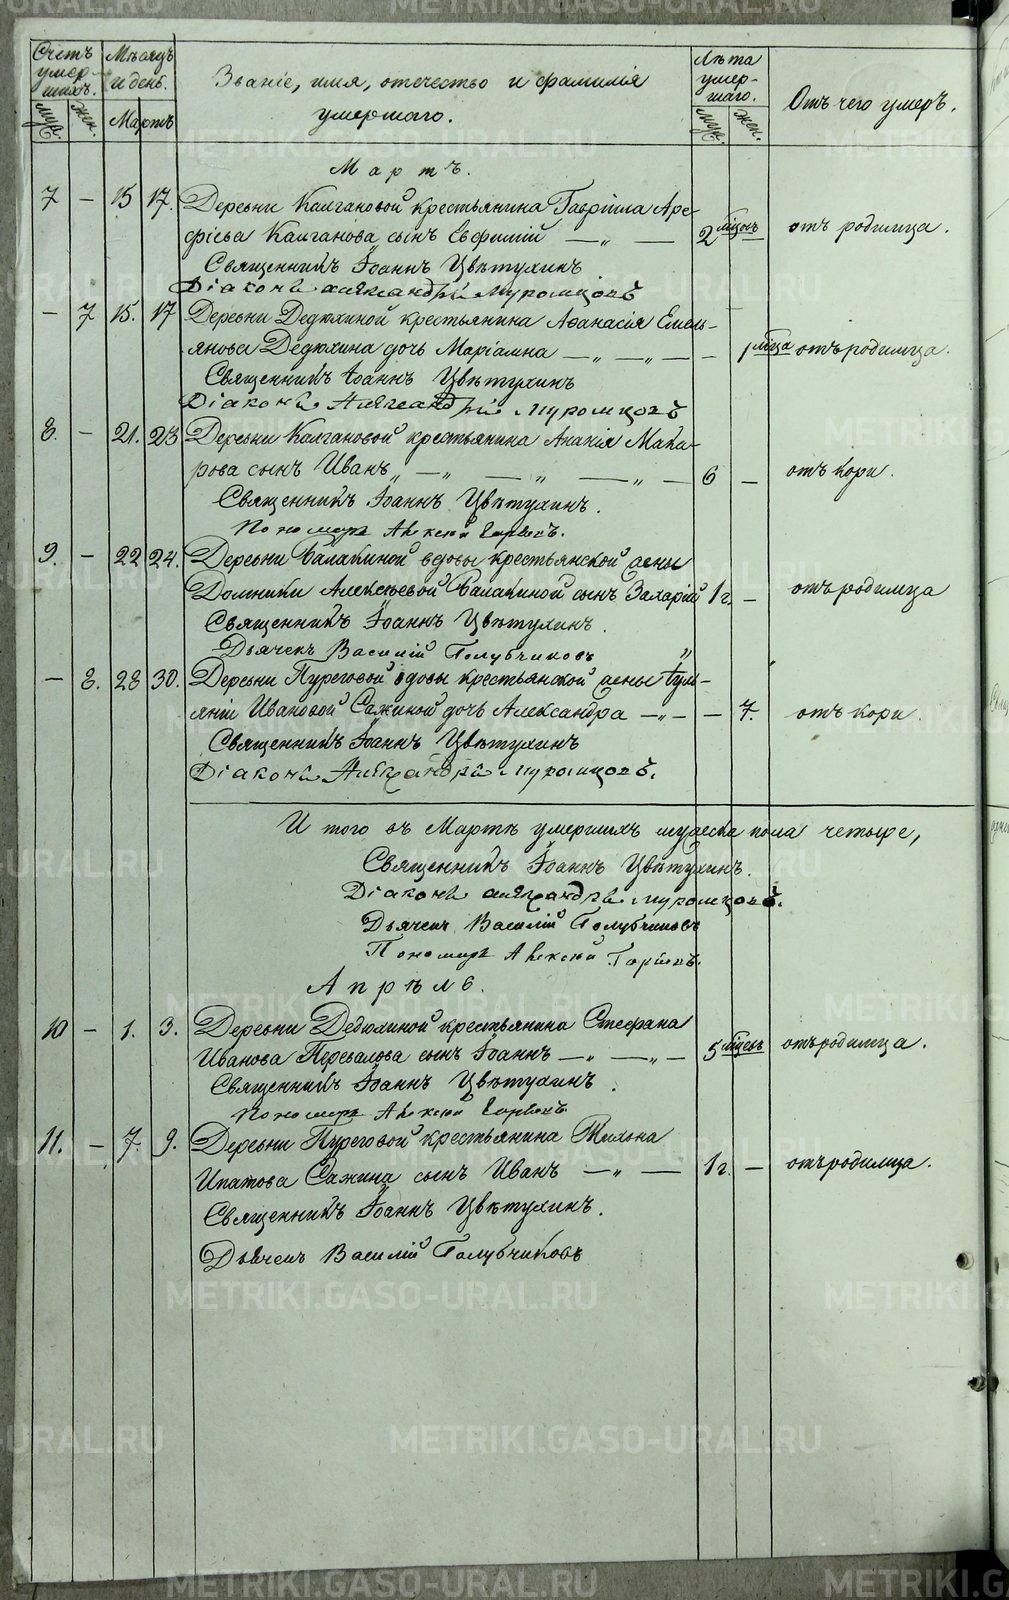 Счетъ умер- шихъ.
Мѣсяцъ и день.
Званіе, имя, отечество и фамилія
умершаго.
Лѣта умер- шаго.
Отъ чего умеръ.
муж. жен. Мартъ муж. жен.
Мартъ.
7 — 15 17. Деревни Калгановой крестьянина Гавріила Аре-
фіева Калганова сынъ Евфимій — „ — 2 мѣсяц. отъ родимца.
Священникъ Іоаннъ Цвѣтухинъ
Діаконъ Александрій Муромцовъ
— 7 15. 17 Деревни Дедюхиной крестьянина Афанасія Емель-
янова Дедюхина дочь Маріамна — „ — „ — — 1 мѣсца отъ родимца.
Священникъ Іоаннъ Цвѣтухинъ
Діаконъ Александрій Муромцовъ
8. — 21. 23 Деревни Калгановой крестьянина Ананія Мака-
рова сынъ Иванъ „ — „ — „ — „ — 6 — отъ кори.
Священникъ Іоаннъ Цвѣтухинъ.
Пономарь Алексій
9. — 22 24. Деревни Балакиной вдовы крестьянской жены
Домники Алексѣевой Балакиной сынъ Захарій 1 г. — отъ родимца
Священникъ Іоаннъ Цвѣтухинъ.
Дьячекъ Василій Голубчиковъ „
— 8. 28 30. Деревни Пуреговой вдовы крестьянской жены Іул-
яніи Ивановой Сажиной дочь Александра — „ — — 7. отъ кори
Священникъ Іоаннъ Цвѣтухинъ
Діаконъ Александрій Муромцовъ.
И того въ Мартѣ умершихъ мужеска пола четыре,
Священникъ Іоаннъ Цвѣтухинъ.
Діаконъ Александрій Муромцовъ.
Дьячекъ Василій Голубчиковъ
Пономарь Алексій
Апрѣль.
10 — 1. 3. Деревни Дедюхиной крестьянина Стефана
Иванова Перевалова сынъ Іоаннъ — „ — „ — 5 мѣсец. отъ родимца.
Священникъ Іоаннъ Цвѣтухинъ.
Пономарь Алексій
11. — 7. 9. Деревни Пуреговой крестьянина Тихона
Ипатова Сажина сынъ Иванъ — „ — 1 г. — отъ родимца.
Священникъ Іоаннъ Цвѣтухинъ.
Дьячекъ Василій Голубчиковъ
METRIKI.GASO-URAL.RU